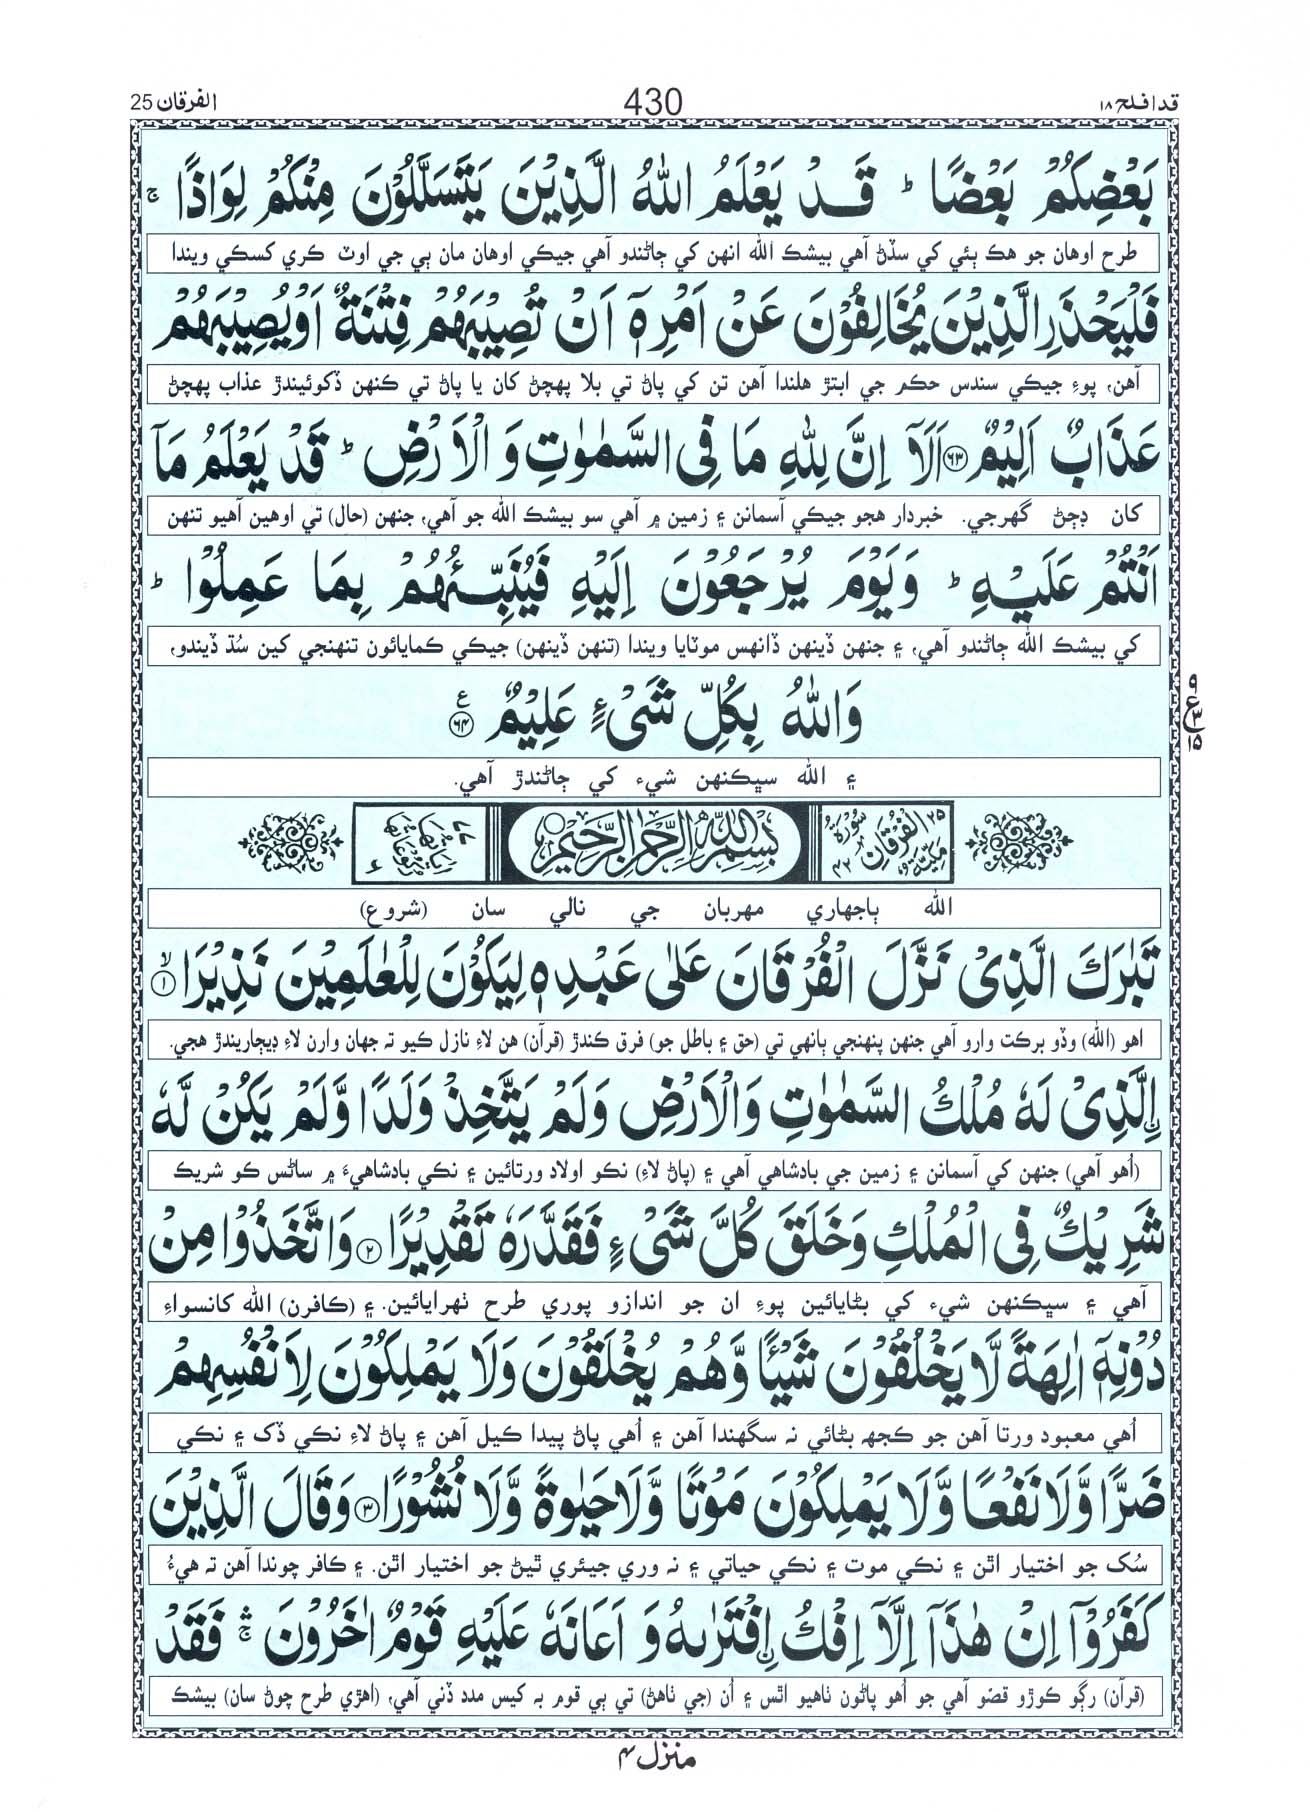 قد افلح ١٨
430
الفرقان 25
بَعْضِكُمْ بَعْضًا ؕ قَدْ يَعْلَمُ اللّٰهُ الَّذِيْنَ يَتَسَلَّلُوْنَ مِنْكُمْ لِوَاذًا ۚ
طرح اوهان جو هڪ ٻئي کي سڏڻ آهي بيشڪ الله انهن کي ڄاڻندو آهي جيڪي اوهان مان ٻي جي اوٽ ڪري کسڪي ويندا
فَلْيَحْذَرِ الَّذِيْنَ يُخَالِفُوْنَ عَنْ اَمْرِهٖۤ اَنْ تُصِيْبَهُمْ فِتْنَةٌ اَوْ يُصِيْبَهُمْ
آهن، پوءِ جيڪي سندس حڪم جي ابتڙ هلندا آهن تن کي پاڻ تي بلا پهچڻ کان يا پاڻ تي ڪنهن ڏکوئيندڙ عذاب پهچڻ
عَذَابٌ اَلِيْمٌ ﴿٦٣﴾ اَلَاۤ اِنَّ لِلّٰهِ مَا فِى السَّمٰوٰتِ وَ الْاَرْضِ ؕ قَدْ يَعْلَمُ مَاۤ
کان ڊڄڻ گهرجي. خبردار هجو جيڪي آسمانن ۽ زمين ۾ آهي سو بيشڪ الله جو آهي، جنهن (حال) تي اوهين آهيو تنهن
اَنْتُمْ عَلَيْهِ ؕ وَيَوْمَ يُرْجَعُوْنَ اِلَيْهِ فَيُنَبِّئُهُمْ بِمَا عَمِلُوْا ؕ
کي بيشڪ الله ڄاڻندو آهي، ۽ جنهن ڏينهن ڏانهس موٽايا ويندا (تنهن ڏينهن) جيڪي ڪمايائون تنهنجي کين سُڌ ڏيندو،
وَاللّٰهُ بِكُلِّ شَىْءٍ عَلِيْمٌ ﴿٦٤﴾ ع
٩ ع ٣ ١٥
۽ الله سڀڪنهن شيء کي ڄاڻندڙ آهي.
٢٥ سُوْرَةُ الْفُرْقَانِ مَكِّيَّةٌ ٤٢
بِسْمِ اللّٰهِ الرَّحْمٰنِ الرَّحِيْمِ
اٰيَاتُهَا ٧٧ رُكُوْعَاتُهَا ٦
الله ٻاجهاري مهربان جي نالي سان (شروع)
تَبٰرَكَ الَّذِىْ نَزَّلَ الْفُرْقَانَ عَلٰى عَبْدِهٖ لِيَكُوْنَ لِلْعٰلَمِيْنَ نَذِيْرَا ۙ﴿١﴾
اهو (الله) وڏو برڪت وارو آهي جنهن پنهنجي ٻانهي تي (حق ۽ باطل جو) فرق ڪندڙ (قرآن) هن لاءِ نازل ڪيو ته جهان وارن لاءِ ڊيڄاريندڙ هجي.
اۨلَّذِىْ لَهٗ مُلْكُ السَّمٰوٰتِ وَالْاَرْضِ وَلَمْ يَتَّخِذْ وَلَدًا وَّلَمْ يَكُنْ لَّهٗ
(اُهو آهي) جنهن کي آسمانن ۽ زمين جي بادشاهي آهي ۽ (پاڻ لاءِ) نڪو اولاد ورتائين ۽ نڪي بادشاهيءَ ۾ ساڻس ڪو شريڪ
شَرِيْكٌ فِى الْمُلْكِ وَخَلَقَ كُلَّ شَىْءٍ فَقَدَّرَهٗ تَقْدِيْرًا ﴿٢﴾ وَاتَّخَذُوْا مِنْ
آهي ۽ سڀڪنهن شيء کي بڻايائين پوءِ ان جو اندازو پوري طرح ٺهرايائين. ۽ (ڪافرن) الله کانسواءِ
دُوْنِهٖۤ اٰلِهَةً لَّا يَخْلُقُوْنَ شَيْئًا وَّهُمْ يُخْلَقُوْنَ وَلَا يَمْلِكُوْنَ لِاَنْفُسِهِمْ
اُهي معبود ورتا آهن جو ڪجهہ بڻائي نہ سگهندا آهن ۽ اُهي پاڻ پيدا ڪيل آهن ۽ پاڻ لاءِ نڪي ڏک ۽ نڪي
ضَرًّا وَّلَا نَفْعًا وَّلَا يَمْلِكُوْنَ مَوْتًا وَّلَا حَيٰوةً وَّلَا نُشُوْرًا ﴿٣﴾ وَقَالَ الَّذِيْنَ
سُک جو اختيار اٿن ۽ نڪي موت ۽ نڪي حياتي ۽ نہ وري جيئري ٿيڻ جو اختيار اٿن. ۽ ڪافر چوندا آهن تہ هيءُ
كَفَرُوْۤا اِنْ هٰذَاۤ اِلَّاۤ اِفْكُ اۨفْتَرٰىهُ وَ اَعَانَهٗ عَلَيْهِ قَوْمٌ اٰخَرُوْنَ ۛۚ فَقَدْ
(قرآن) رڳو ڪوڙو قصو آهي جو اُهو پاڻون ٺاهيو اٿس ۽ اُن (جي ٺاهڻ) تي ٻي قوم بہ کيس مدد ڏني آهي، (اهڙي طرح چوڻ سان) بيشڪ
منزل ٤